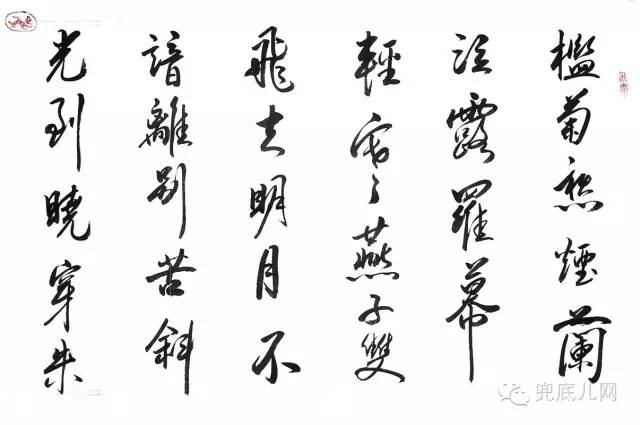 檻菊愁煙蘭
泣露羅幕
輕寒燕子雙
飛去明月不
諳離別苦斜
光到曉穿朱
兜底儿网